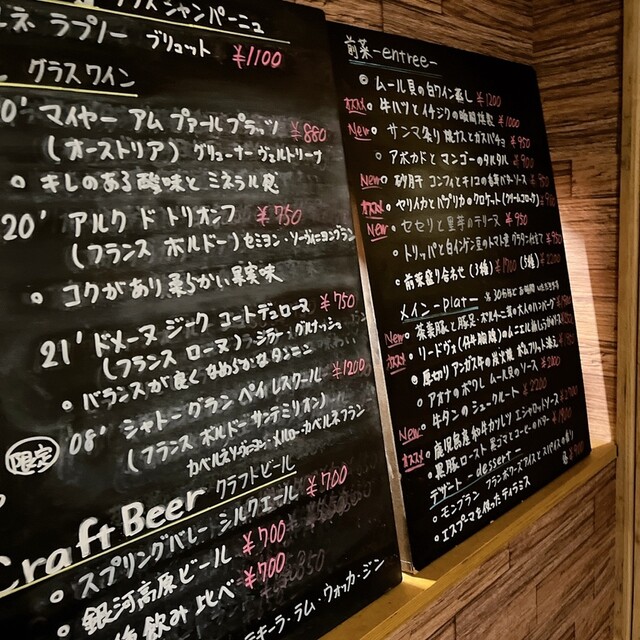 グラスシャンパーニュ
ラブノー ブリュット ¥1100
グラスワイン
マイヤー アム プァールプラッツ ¥880
(オーストリア) グリューナー ヴェルトリーナ
○ キレのある酸味と ミネラル感
20' アルク ド トリオンフ ¥750
(フランス ボルドー) セミヨン・ソーヴィニヨンブラン
○ コクがあり 柔らかい果実味
21' ドメーヌ ジーク コートデュローヌ ¥750
(フランス ローヌ) シラー・グルナッシュ
○ バランスが良く なめらかなタンニン
限定 08' シャトーグラン ペイ レスクール ¥1200
(フランス ボルドー サンテミリオン)
カベルネソーヴィニヨン・メルロー・カベルネフラン
Craft Beer クラフトビール
○ スプリングバレー シルクエール ¥700
○ 銀河高原ビール ¥700
飲み比べ ¥700
テキーラ・ラム・ウォッカ・ジン
前菜 -entree-
◎ ムール貝の白ワイン蒸し ¥1200
オススメ ○ 牛ハツとイチジクの瞬間燻製 ¥1000
New ○ サンマ炙り 焼ナスとガスパチョ ¥950
○ アボカドと マンゴーのタルタル ¥900
New ○ 砂肝 コンフィとキノコの
オススメ ○ ヤリイカとパプリカのクロケット(クリームコロッケ)
New ○ セセリと里芋のテリーヌ ¥950
○ トリッパと白インゲン豆のトマト煮 グラタン仕立て ¥950
○ 前菜盛り合わせ (3種) ¥1700 (5種) ¥2200
メイン -Plat- ※30分ほどお時間
New ○ 茶美豚と豚足・ポルチーニ茸の大人のハンバーグ
オススメ ○ リードヴォ(仔牛胸腺)のムニエル
◎ 厚切りアンガス牛の炭火焼
○ アオナのポワレ ムール貝のソース ¥2000
○ 牛タンのシュークルート ¥2200
New オススメ ○ 鹿児島産和牛カツレツ エシャロットソース
○ 黒豚ロースト 黒ゴマとコーヒーのバター
デザート -dessert-
○ モンブラン フランボワーズアイスとスパイスの香り
○ エスプーマを使ったティラミス